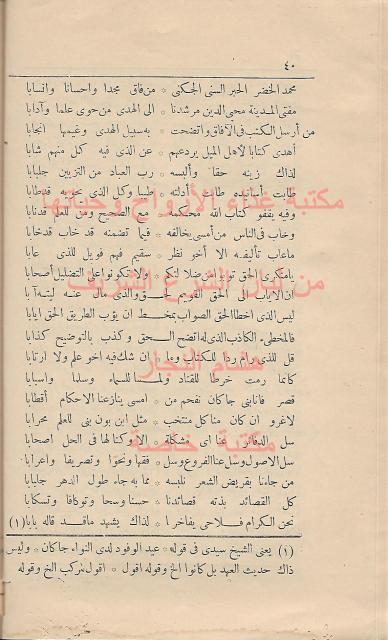 ٤٠
محمد الخضر الحبر السنى الجكنى * من فاق مجدا واحسانا وانسابا
مفتى المدينة محيى الدين مرشدنا * الى الهدى من حوى علما وآدابا
من أرسل الكتب فى الآفاق واتضحت * به سبيل الهدى وغيمها انجابا
أهدى كتابا لأهل الميل يردعهم * عن الذى فيه كل منهم شابا
لذاك زينه حقا وألبسه * رب العباد من التزيين جلبابا
طابت أسانيده طابت أدلته * طيبا وكل الذى يحتوى
وفيه يقفو كتاب الله محكمه * مع الصحيح ومن للعلم
وخاب فى الناس من أمسى يخالفه * فيما تضمنه قد خاب قد خابا
ماعاب تأليفه الا أخو نظر * سقيم فهم فويل للذى عابا
يامنكرى الحق توبوا من ضلالتكم * ولا تكونوا على التضليل أصحابا
ان الاياب الى الحق القويم لحق والذى مال عنه ليته آبا
ليس الذى اخطا الحق الصواب بمخط ان يؤب الطريق الحق ايابا
فالمخطىء الكاذب الذى له اتضح الحق وكذب بالتوضيح كذابا
قل للذى رام ردا للكتاب وما * ان شك فيه اخو علم ولا ارتابا
كانما رمت خرطا للقتاد ولمسا للسماء وسلما واسبابا
قصر فانا بنى جاكان نفحم من * امسى ينازعنا الاحكام أقطابا
لاغرو ان كان منا كل منتخب * مثل ابن بون بنى للعلم محرابا
سل الدفاتر عنا اى مشكلة * الا وكنا لها فى الحل اصحابا
سل الاصول وسل عنا الفروع وسل * فقها ونحوا وتصريفا واعرابا
من جاءنا بقريض الشعر نلبسه * مما به جاء طول الدهر جلبابا
كل القصائد بذته قصائدنا * حسنا وسحا وتوكافا وتسكابا
نحن الكرام فلا حى يفاخرنا * لذاك يشهد ماقد قاله بابا (١)
(١) يعنى الشيخ سيدى فى قوله * عيد الوفود لدى النواء جاكان * وليس
ذاك حديث العهد بل كانوا الخ وقوله اقول * اقول لركب الخ وقوله
مكتبة غذاء الأرواح وحياتها
من لبان الشرع الشريف
هشام النجار
مكتبة خاصة